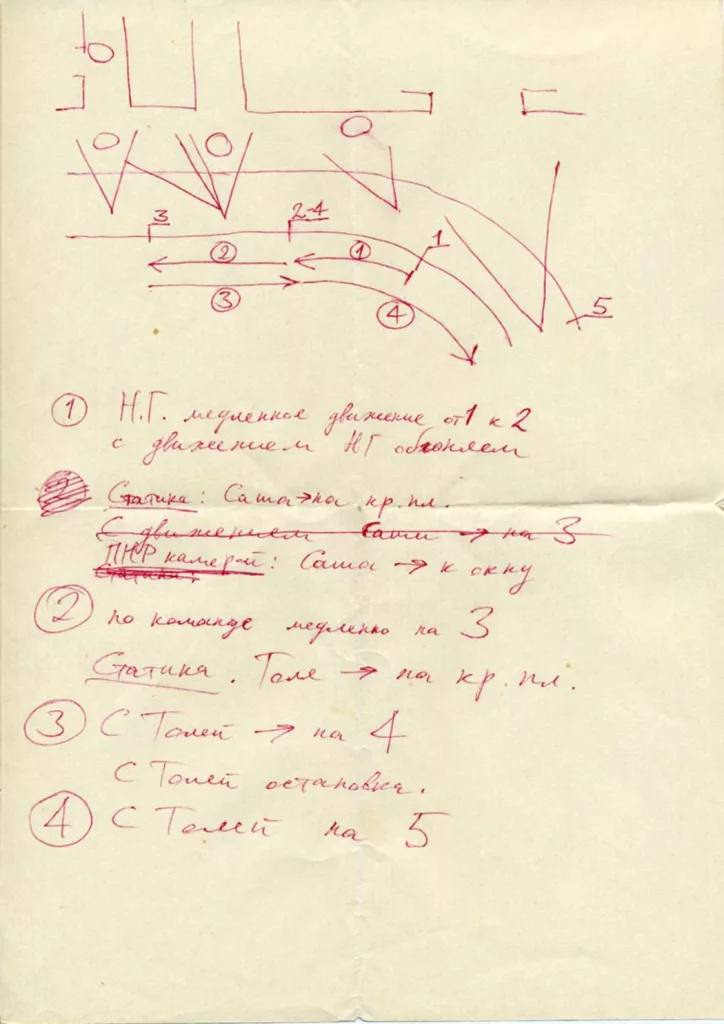 3
2-4
1
②
①
③
④
5
① Н.Г. медленное движение от 1 к 2
с движением НГ обгоняем
② Статика: Саша → на кр. пл.
С движением Саши → на 3
ПНР камерой: Саша → к окну
Статика:
② по команде медленно на 3
Статика. Толя → на кр. пл.
③ С Толей → на 4
С Толей остановка.
④ С Толей на 5